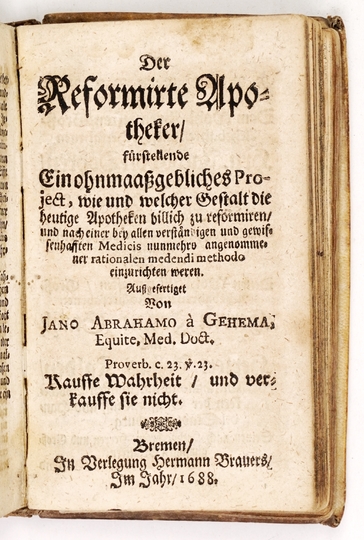 Der
Reformirte Apo-
theker/
fürstellende
Ein ohnmaaßgebliches Pro-
ject, wie und welcher Gestalt die
heutige Apotheken billich zu reformiren/
und nach einer bey allen verständigen und gewis-
senhafften Medicis nunmehro angenomme-
ner rationalen medendi methodo
einzurichten weren.
Außgefertiget
Von
JANO ABRAHAMO à GEHEMA,
Equite, Med. Doct.
Proverb. c. 23. ℣. 23.
Kauffe Wahrheit / und ver-
kauffe sie nicht.
Bremen/
In Verlegung Hermann Brauers/
Im Jahr/ 1688.